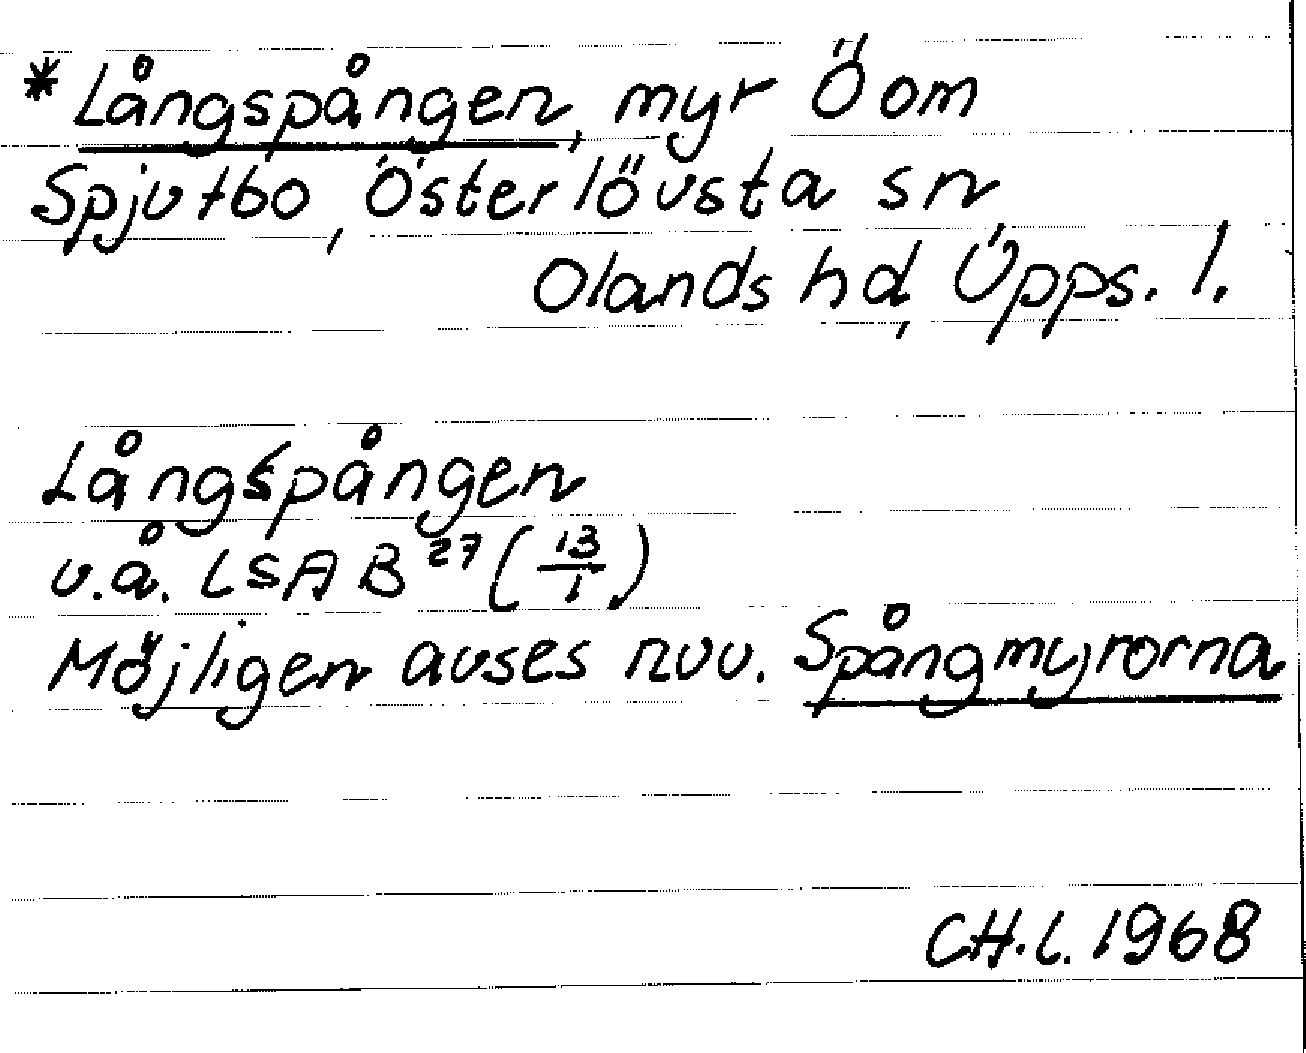 *Långspången, myr Ö om
Spjutbo, Österlövsta sn
Olands hd, Upps. l.
Långspången
u.å. LSA B 27 (13/1)
Möjligen avses nuv. Spångmyrorna
CH.L. 1968